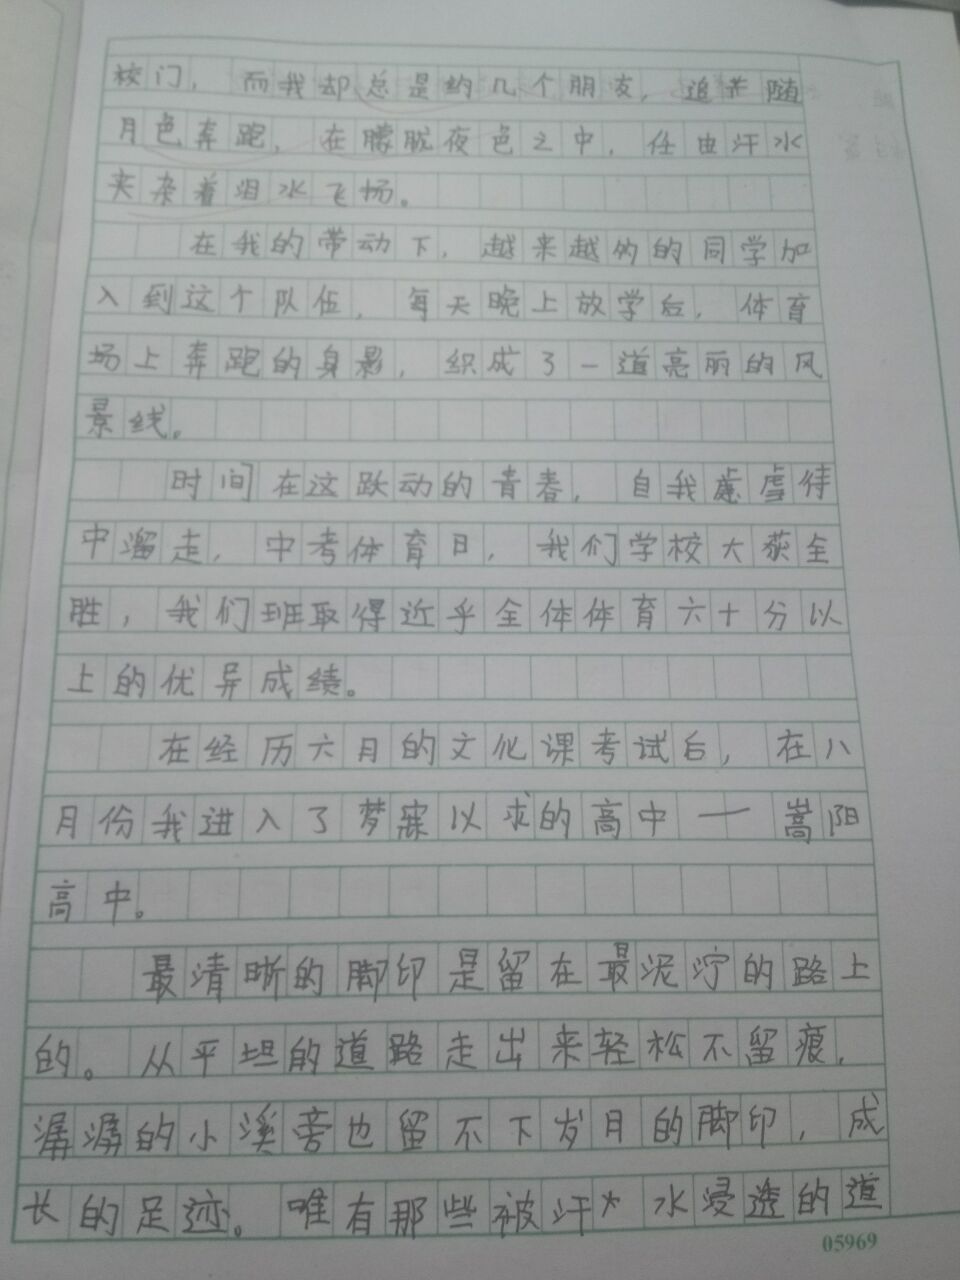 校门，而我却总是约几个朋友，追并随
月色奔跑，在朦胧夜色之中，任由汗水
夹杂着泪水飞扬。
在我的带动下，越来越多的同学加
入到这个队伍，每天晚上放学后，体育
场上奔跑的身影，织成了一道亮丽的风
景线。
时间在这跃动的青春，自我虐待
中溜走，中考体育日，我们学校大获全
胜，我们班取得近乎全体体育六十分以
上的优异成绩。
在经历六月的文化课考试后，在八
月份我进入了梦寐以求的高中——嵩阳
高中。
最清晰的脚印是留在最泥泞的路上
的。从平坦的道路走出来轻松不留痕，
潺潺的小溪旁也留不下岁月的脚印，成
长的足迹。唯有那些被汗水浸透的道
05969